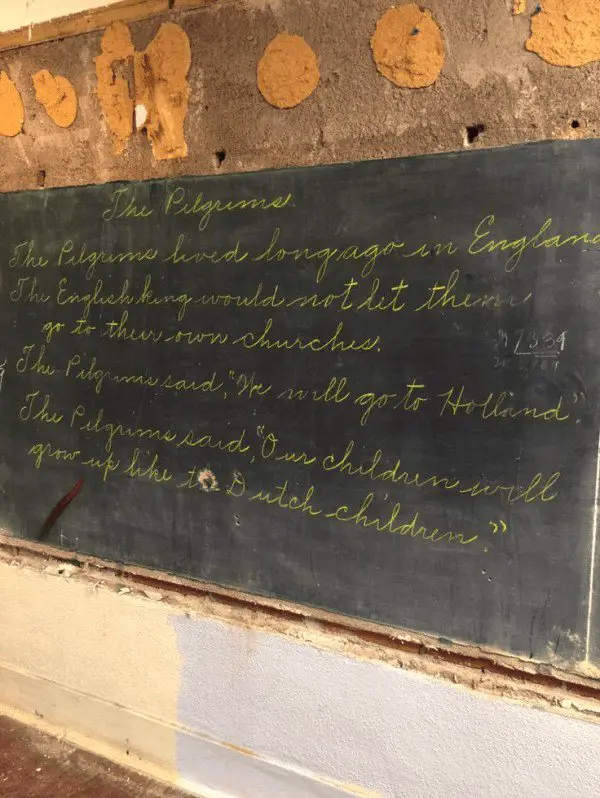 The Pilgrims
The Pilgrims lived long ago in England
The English king would not let them
go to their own churches.
The Pilgrims said, "We will go to Holland".
The Pilgrims said, "Our children will
grow up like to Dutch children."
7339